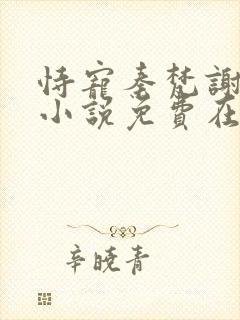 恃寵秦梵謝
小說免費在
辛曉青